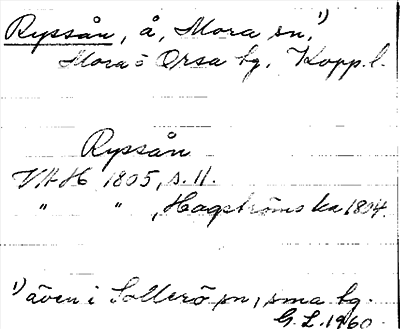 Ryssån, å, Mora sn.¹⁾
Mora o Orsa tg. Kopp. l.
Ryssån
VAH 1805, s. 11.
" " , Hagströms ka 1804.
¹⁾ även i Sollerö sn, sma tg.
G. L. 1960.